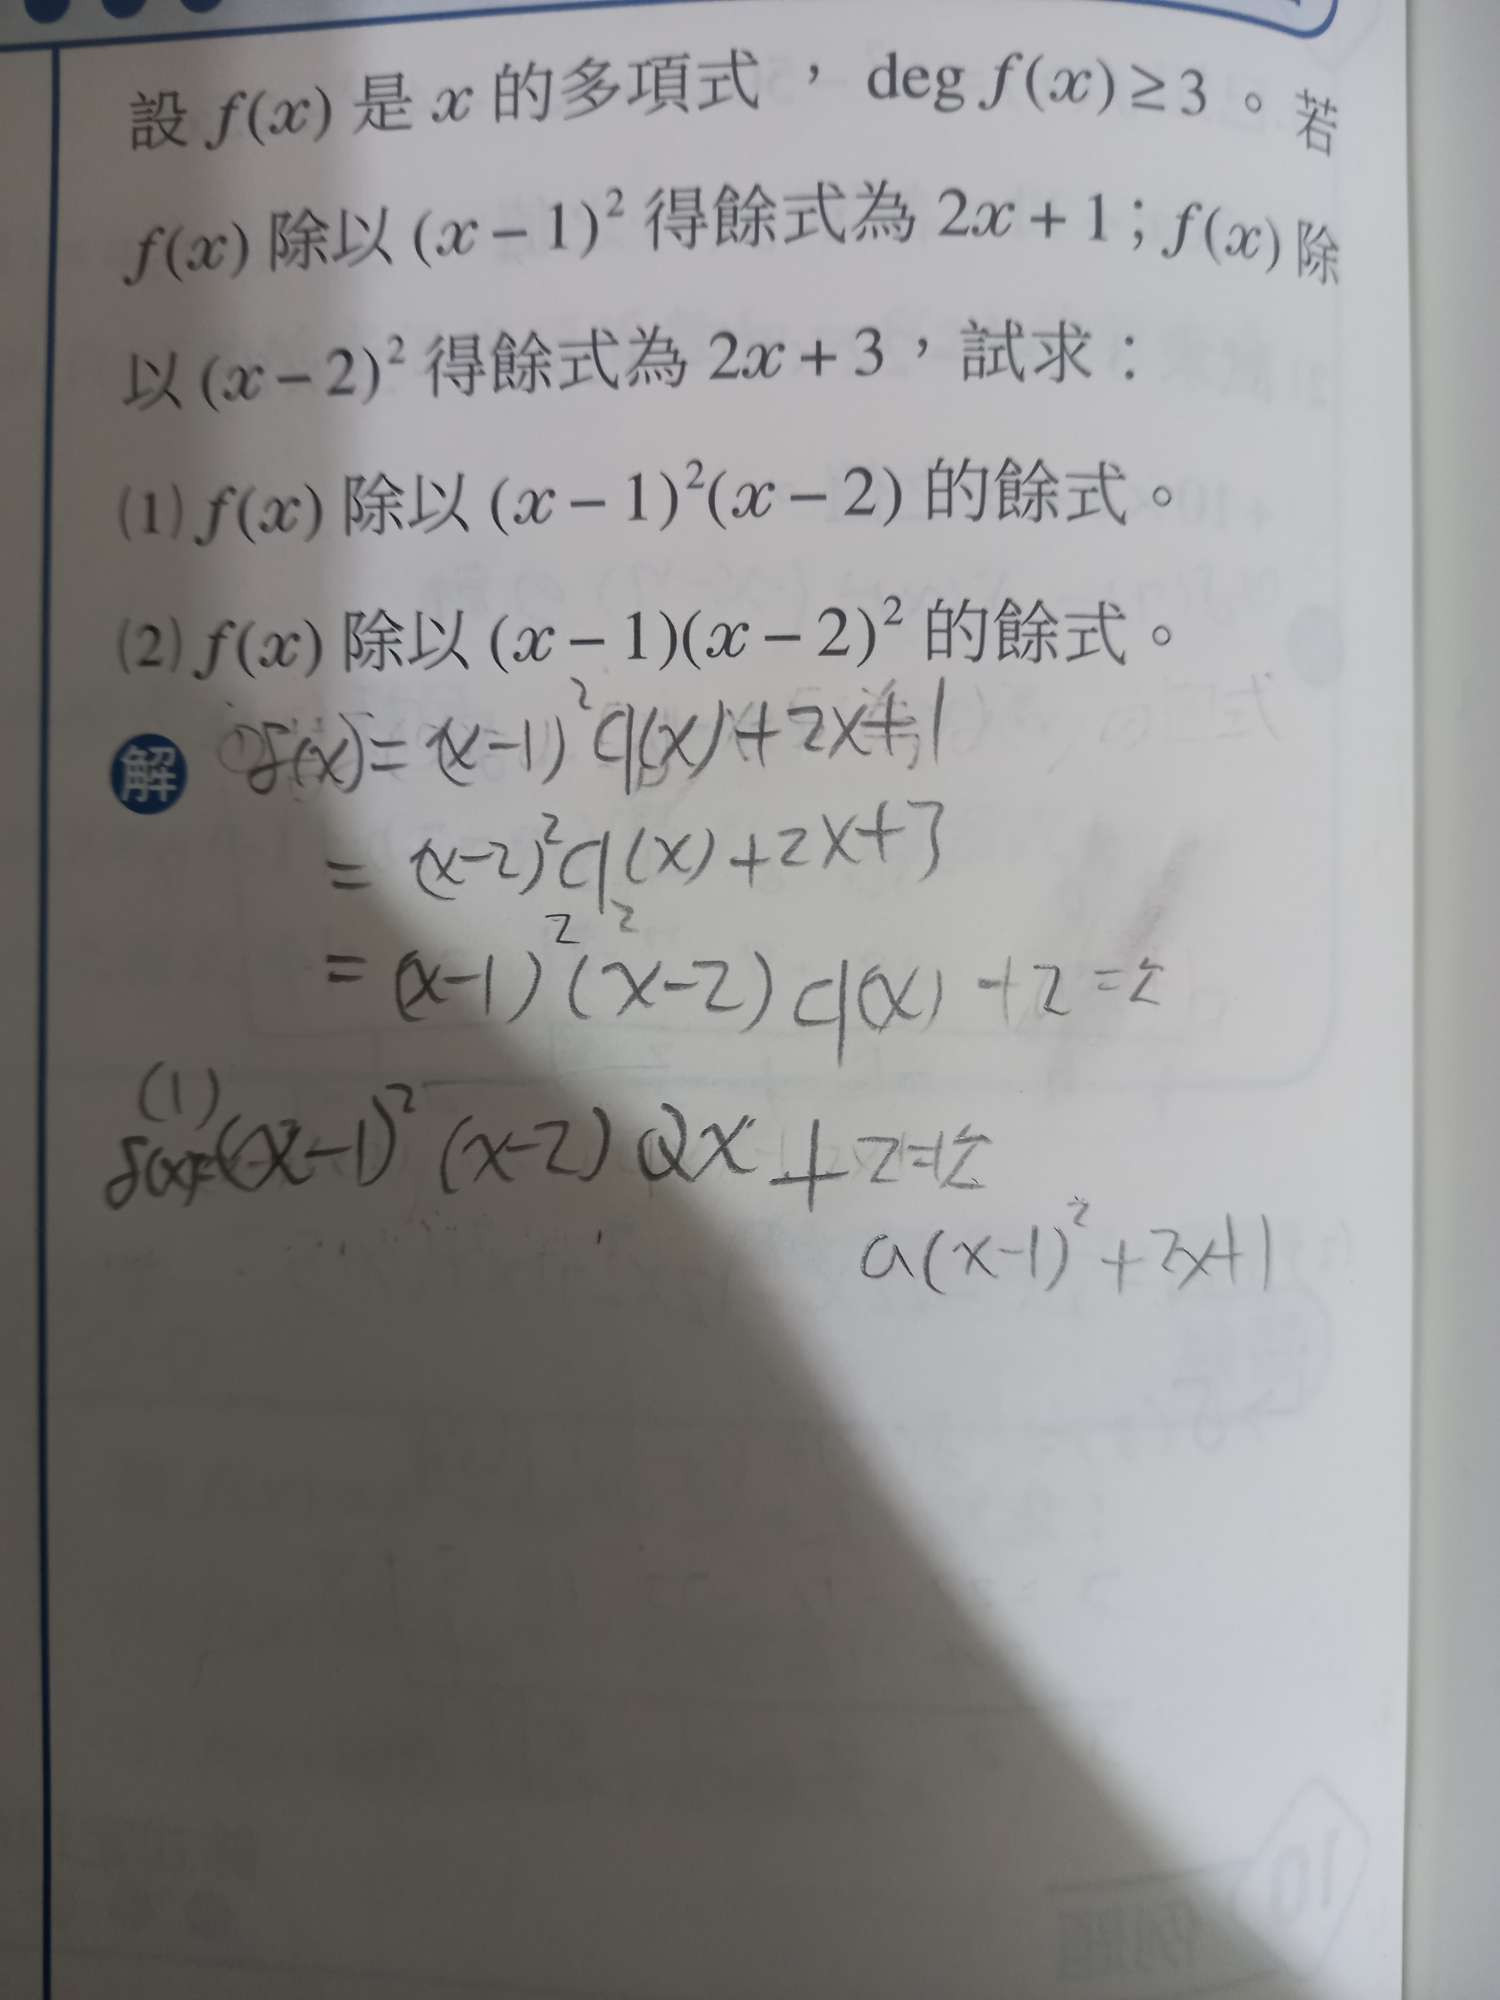 設 f(x) 是 x 的多項式，deg f(x) ≥ 3。若
f(x) 除以 (x − 1)² 得餘式為 2x + 1；f(x) 除
以 (x − 2)² 得餘式為 2x + 3，試求：
(1) f(x) 除以 (x − 1)²(x − 2) 的餘式。
(2) f(x) 除以 (x − 1)(x − 2)² 的餘式。
解 f(x) = (x-1)² q(x) + 2x+1
= (x-2)² q(x) + 2x+3
= (x-1)² (x-2) q(x)
(1)
f(x)=(x-1)² (x-2) Qx +
a(x-1)² + 2x+1
例題 10